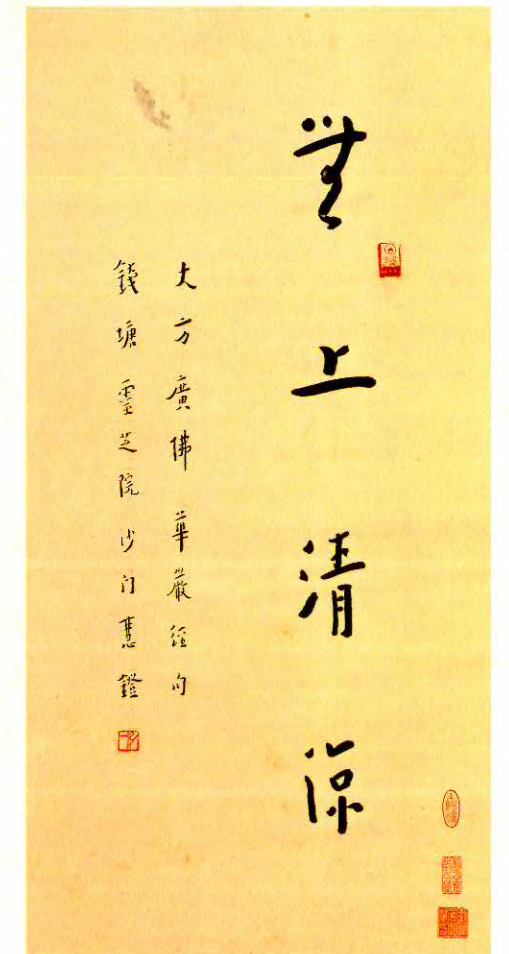 無上清涼
大方廣佛華嚴經句
錢塘靈芝院沙门慧鐙